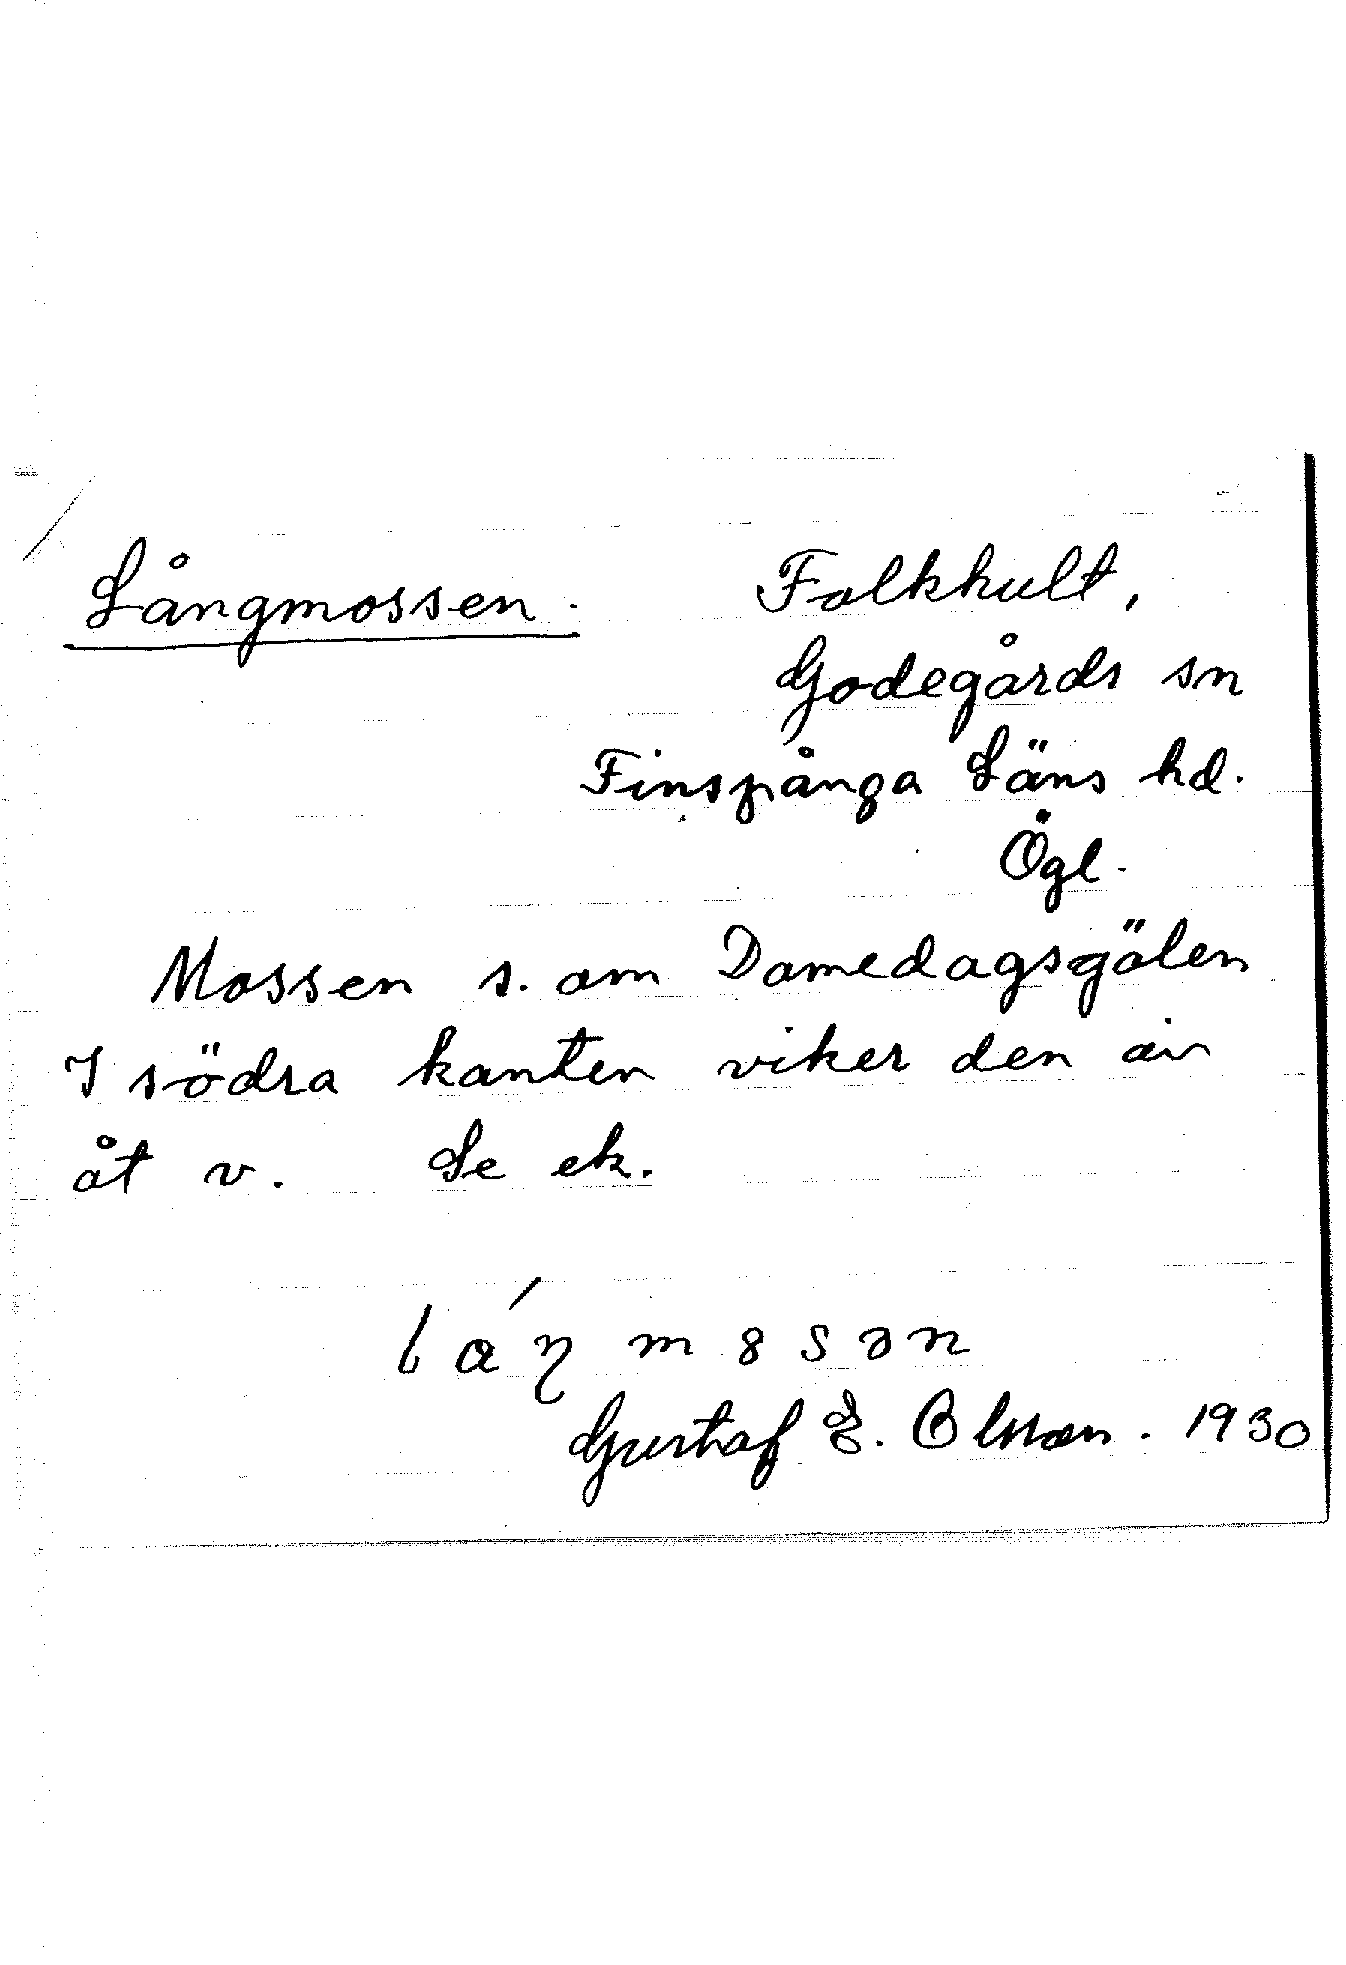 Långmossen.
Folkhult,
Godegårds sn
Finspånga Läns hd.
Ögl.
Mossen s. om Domedagsgölen
I södra kanten viker den av
åt v. Se ek.
láŋmosən
Gustaf E. Olsson. 1930